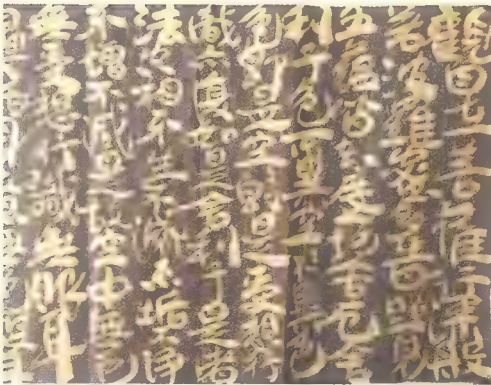 觀自在菩薩行深般
若波羅蜜多時照見
五蘊皆空度一切苦厄舍
利子色不異空空不異色
色即是空空即是色受想行
識亦復如是舍利子是諸
法空相不生不滅不垢不淨
不增不減是故空中無色
無受想行識無眼耳